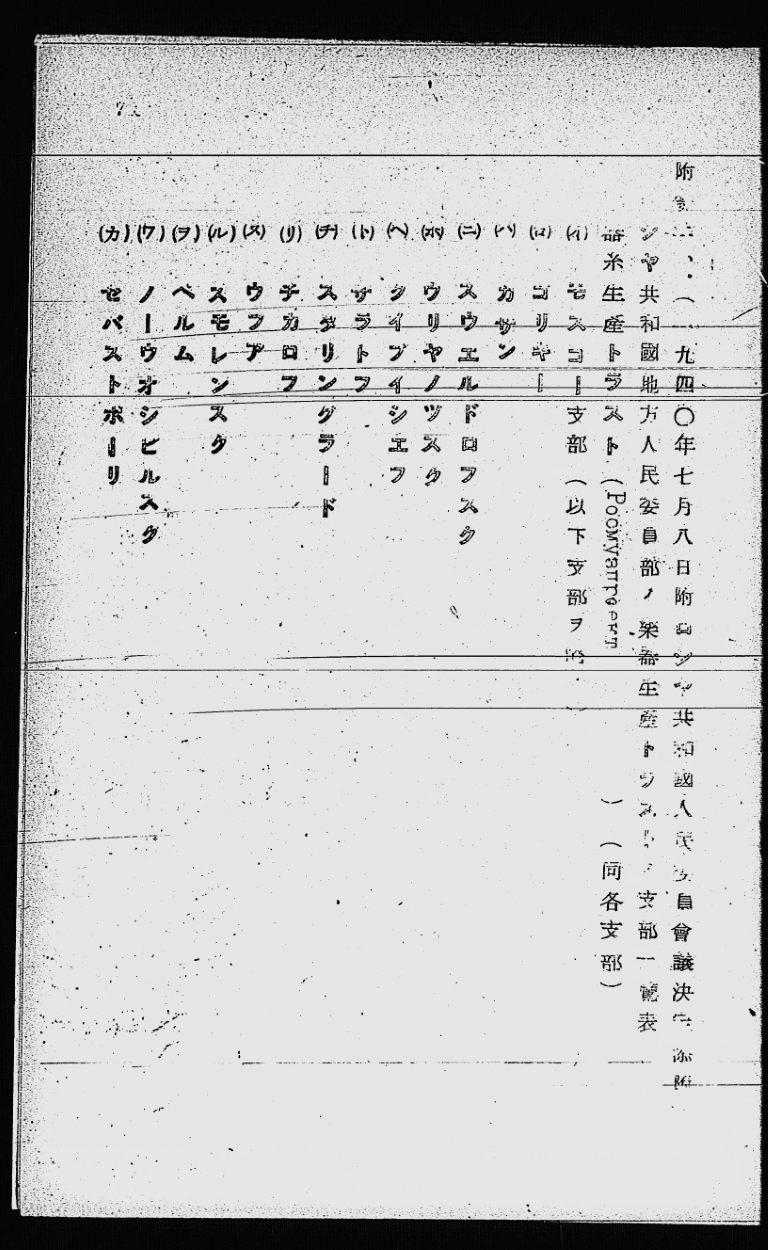 附 、（一九四〇年七月八日附ロシヤ共和國人民委員會議決定 添附
シヤ共和國地方人民委員部ノ樂器生產トラストノ支部一覽表
器糸生產トラスト（ ）（同各支部）
(イ) モスコー支部（以下支部ヲ
(ロ) ゴリキー
(ハ) カザン
(ニ) スウエルドロフスク
(ホ) ウリヤノツスク
(ヘ) クイブイシエフ
(ト) サラトフ
(チ) スタリングラード
(リ) チカロフ
(ヌ) ウフア
(ル) スモレンスク
(ヲ) ペルム
(ワ) ノーウオシビルスク
(カ) セバストポーリ